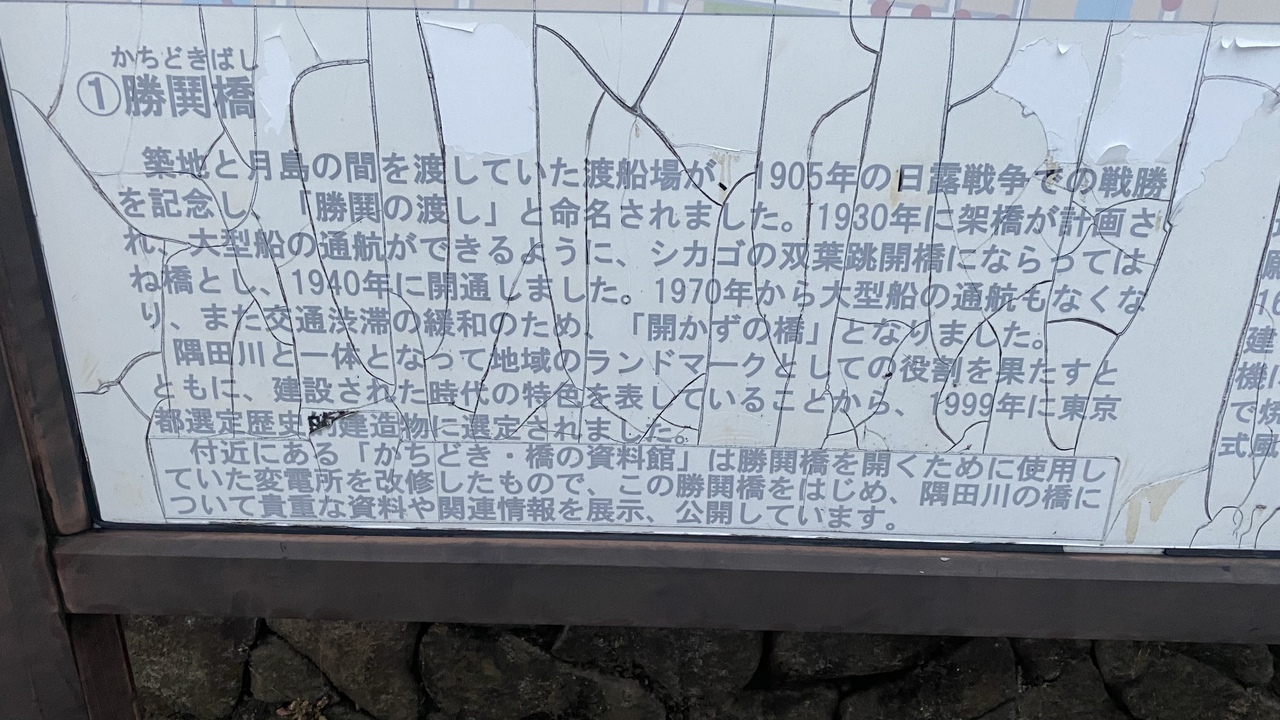 かちどきばし
①勝鬨橋
築地と月島の間を渡していた渡船場が、1905年の日露戦争での戦勝
を記念し、「勝鬨の渡し」と命名されました。1930年に架橋が計画さ
れ、大型船の通航ができるように、シカゴの双葉跳開橋にならっては
ね橋とし、1940年に開通しました。1970年から大型船の通航もなくな
り、また交通渋滞の緩和のため、「開かずの橋」となりました。
隅田川と一体となって地域のランドマークとしての役割を果たすと
ともに、建設された時代の特色を表していることから、1999年に東京
都選定歴史的建造物に選定されました。
付近にある「かちどき・橋の資料館」は勝鬨橋を開くために使用し
ていた変電所を改修したもので、この勝鬨橋をはじめ、隅田川の橋に
ついて貴重な資料や関連情報を展示、公開しています。
建
機
で
式風